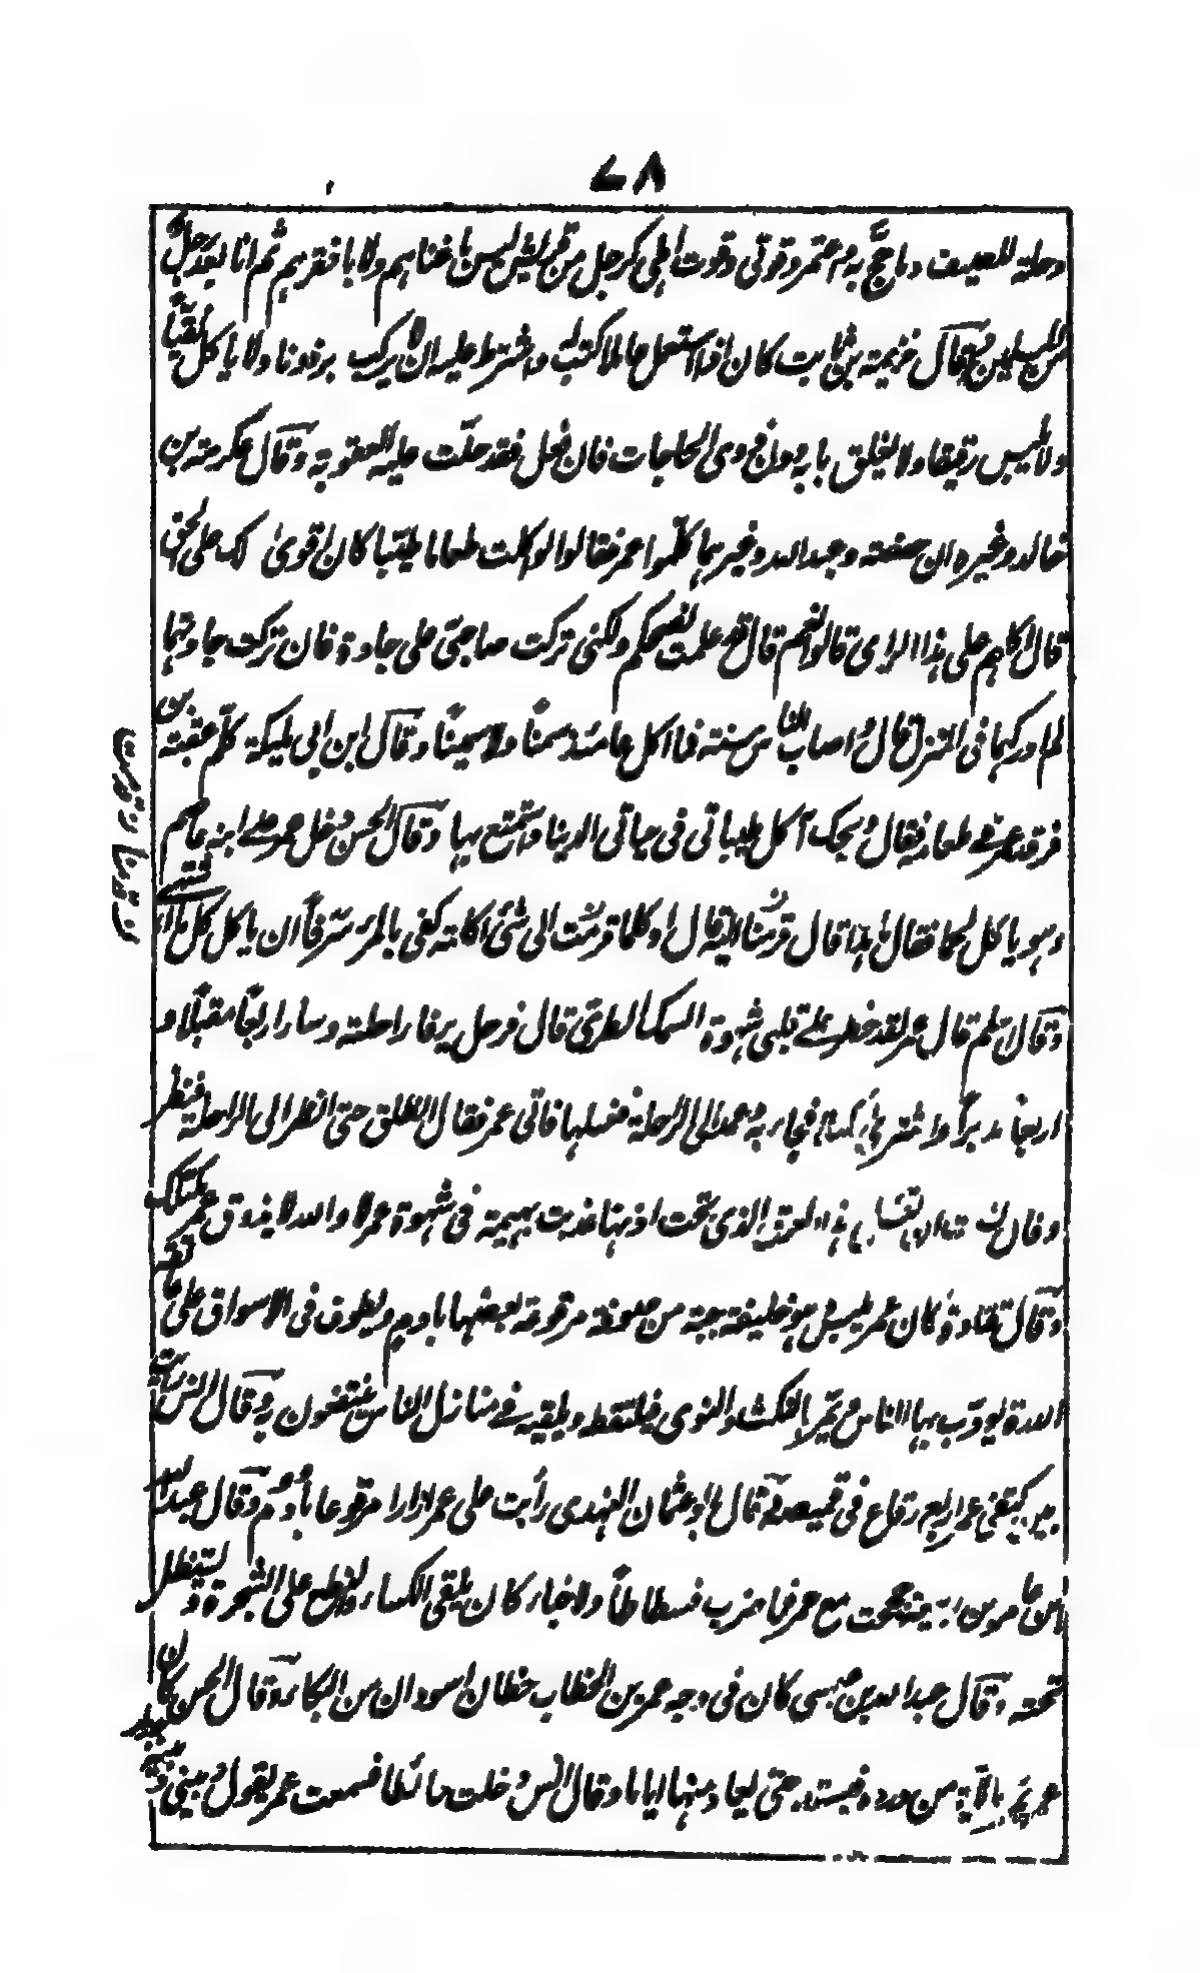 ٧٨
وحلة للصيف وما حج به واعتمر وقوتى وقوت اهلى كرجل من قريش ليس باغناهم ولا بافقرهم ثم انا بعد رجل
من المسلمين وقال خزيمة بن ثابت كان اذا استعمل عاملا كتب له واشترط عليه ان لا يركب برذونا ولا ياكل نقيا
ولا يلبس رقيقا ولا يغلق بابه دون ذوى الحاجات فان فعل فقد حلت عليه العقوبة وقال عكرمة بن
خالد وغيره ان حفصة وعبد الله وغيرهما كلموا عمر فقالوا لو اكلت طعاما طيبا كان اقوى لك على الحق
قال اكلهم على هذا الراى قالوا نعم قال قد علمت نصحكم ولكنى تركت صاحبى على جادة فان تركت جادتهما
لم ادركهما فى المنزل قال واصاب الناس سنة فما اكل عامئذ سمنا ولا سمينا وقال ابن ابى مليكة كلم عتبة بن
فرقد عمر فى طعامه فقال ويحك آكل طيباتى فى حياتى الدنيا واستمتع بها وقال الحسن دخل عمر على ابنه عاصم
وهو ياكل لحما فقال ما هذا قال قرمنا اليه قال او كلما قرمت الى شئ اكلته كفى بالمرء سرفا ان ياكل كل ما اشتهى
وقال اسلم قال عمر لقد خطر على قلبى شهوة السمك الطرى قال فرحل يرفا راحلته وسار اربعا مقبلا و
اربعا مدبرا واشترى مكتلا فجاء به وعمد الى الراحلة فغسلها فاتى عمر فقال انطلق حتى انظر الى الراحلة فنظر
وقال نسيت ان تغسل هذا العرق الذى تحت اذنها عذبت بهيمة فى شهوة عمر لا والله لا يذوق عمر مكتلك
وقال قتادة كان عمر يلبس وهو خليفة جبة من صوف مرقوعة بعضها بادم ويطوف فى الاسواق على عاتقه
الدرة يودب بها الناس ويمر بالنكث والنوى فيلتقطه ويلقيه فى منازل الناس ينتفعون به وقال انس رايت
بين كتفى عمر اربع رقاع فى قميصه وقال ابو عثمان النهدى رأيت على عمر ازارا مرقوعا بأدم وقال عبد الله
بن عامر بن ربيعة حججت مع عمر فما ضرب فسطاطا ولا خباء كان يلقى الكساء والنطع على الشجرة ويستظل
تحته وقال عبد الله بن عيسى كان فى وجه عمر بن الخطاب خطان اسودان من البكاء وقال الحسن كان
عمر يمر بالآية من ورده فيسقط حتى يعاد منها اياما وقال انس دخلت حائطا فسمعت عمر يقول وبينى وبينه جدار